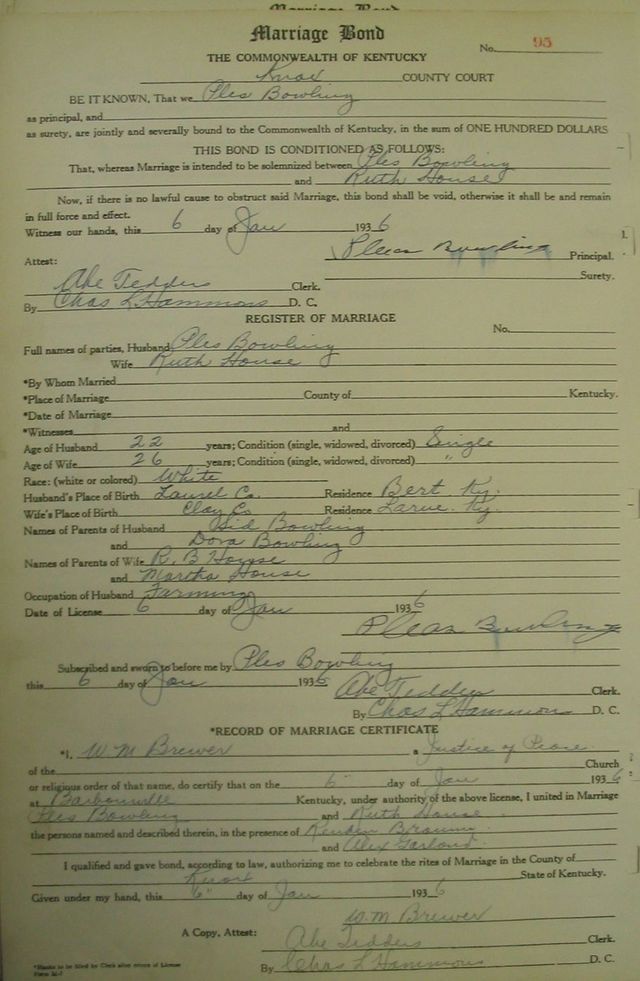 Marriage Bond
No. 95
THE COMMONWEALTH OF KENTUCKY
Knox COUNTY COURT
BE IT KNOWN, That we Ples Bowling
as principal, and
as surety, are jointly and severally bound to the Commonwealth of Kentucky, in the sum of ONE HUNDRED DOLLARS
THIS BOND IS CONDITIONED AS FOLLOWS:
That, whereas Marriage is intended to be solemnized between Ples Bowling
and Ruth House
Now, if there is no lawful cause to obstruct said Marriage, this bond shall be void, otherwise it shall be and remain
in full force and effect.
Witness our hands, this 6 day of Jan 1936
Pleas Bowling Principal.
Attest:
Surety.
Abe Tedders Clerk.
By Chas L Hammons D. C.
REGISTER OF MARRIAGE
No.
Full names of parties, Husband Ples Bowling
Wife Ruth House
*By Whom Married
*Place of Marriage County of Kentucky.
*Date of Marriage
*Witnesses and
Age of Husband 22 years; Condition (single, widowed, divorced) Single
Age of Wife 26 years; Condition (single, widowed, divorced) "
Race: (white or colored) White
Husband's Place of Birth Laurel Co. Residence Bert Ky.
Wife's Place of Birth Clay Co Residence Larue Ky.
Names of Parents of Husband Sid Bowling
and Dora Bowling
Names of Parents of Wife R. B House
and Martha House
Occupation of Husband Farming
Date of License 6 day of Jan 1936
Pleas Bowling
Subscribed and sworn to before me by Ples Bowling
this 6 day of Jan 1936
Abe Tedders Clerk.
By Chas L Hammons D. C.
*RECORD OF MARRIAGE CERTIFICATE
*I, W M Brewer a Justice of Peace
of the Church
or religious order of that name, do certify that on the 6 day of Jan 1936
at Barbourville Kentucky, under authority of the above license, I united in Marriage
Ples Bowling and Ruth House
the persons named and described therein, in the presence of
and Alex Garland
I qualified and gave bond, according to law, authorizing me to celebrate the rites of Marriage in the County of
State of Kentucky.
Given under my hand, this 6" day of Jan 1936
W. M Brewer
A Copy, Attest: Abe Tedders Clerk.
By Chas L Hammons D. C.